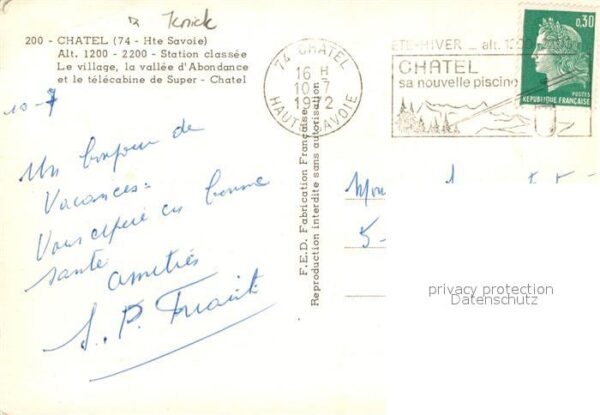 Knick
200 - CHATEL (74 - Hte Savoie)
Alt. 1200 - 2200 - Station classée
Le village, la vallée d'Abondance
et le télécabine de Super - Chatel
10-7
Un bonjour de
Vacances.
Vous espère en bonne
santé
amitiés
F.E.D. Fabrication Française
Reproduction interdite sans autorisation
74 CHATEL
16 H
10-7
1972
HAUTE-SAVOIE
ETE-HIVER _ alt.
CHATEL
sa nouvelle piscine
0,30
POSTES
REPUBLIQUE FRANÇAISE
5-
privacy protection
Datenschutz